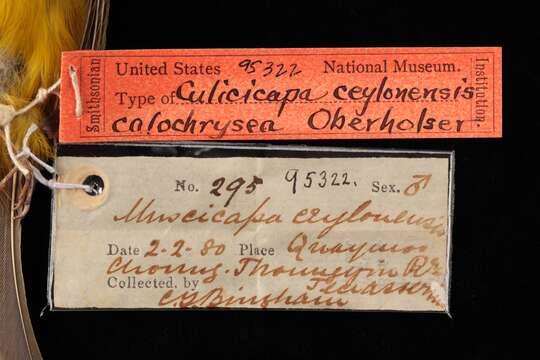 Smithsonian
United States 95322 National Museum.
Type of Culicicapa ceylonensis
calochrysea Oberholser
Institution.
No. 295 95322. Sex. ♂
Muscicapa ceylonensis
Date 2-2-80 Place
Choung. Thoungyin R.
Collected. by
C. Bingham